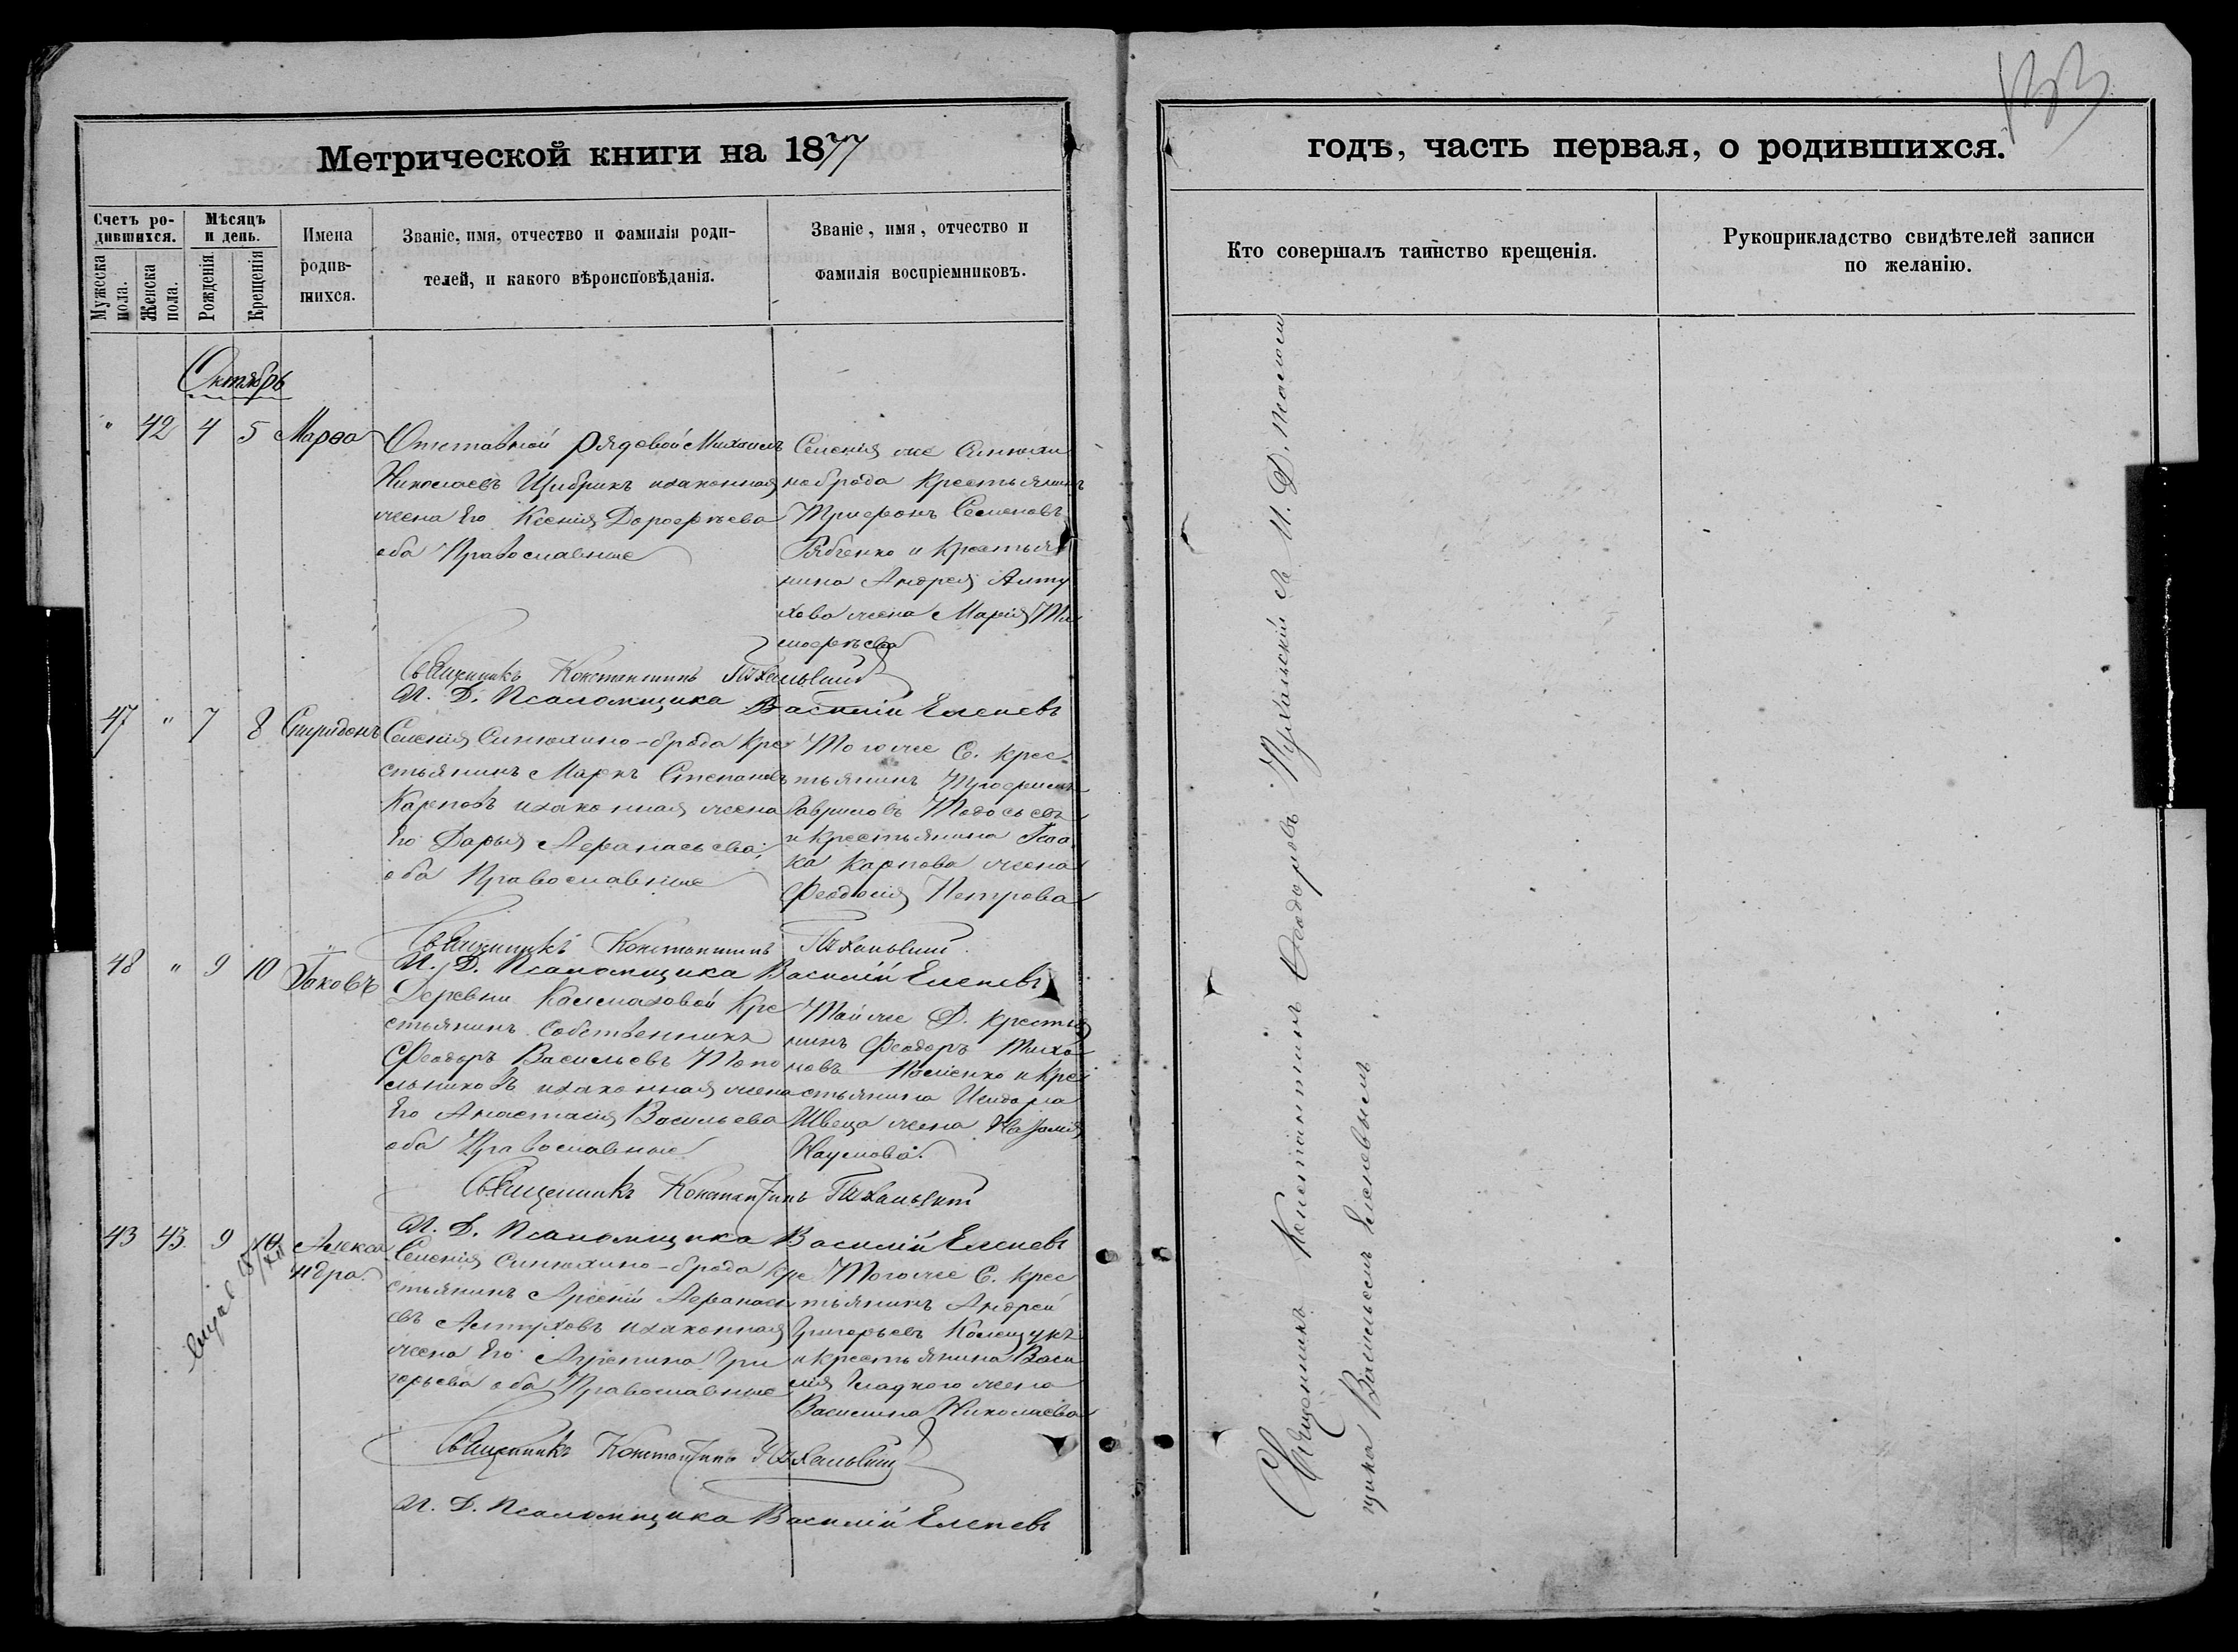 133
Метрической книги на 1877
годъ, часть первая, о родившихся.
Счетъ ро-
дившихся.
Мужеска
пола.
Женска
пола.
Мѣсяцъ
и день.
Рожденія.
Крещенія
Имена
родив-
шихся.
Званіе, имя, отчество и фамилія роди-
телей, и какого вѣроисповѣданія.
Званіе, имя, отчество и
фамилія воспріемниковъ.
Кто совершалъ таинство крещенія.
Рукоприкладство свидѣтелей записи
по желанію.
Октябрь
" 42 4 5 Марѳа
Отставной рядовой Михаилъ
Николаевъ Щибрикъ изаконная
жена Его Ксенія Дорофѣева
оба Православные
Селенія же Синюхи
но брода Крестьянинъ
Трифонъ Семеновъ
Рябченко и Крестья
нина Андрея Алту
хова жена Марія Ти
мофѣева
Священникъ Константинъ
И. Д. Псаломщика Василій Елепевъ
47 " 7 8 Спиридонъ
Селенія Синюхино-брода Кре
стьянинъ Маркъ Степановъ
Карповъ изаконная жена
Его Дарья Афанасьева,
оба Православные
Того же С. Крес
тьянинъ Трофимъ
Гавриловъ
и Крестьянина Исаа
ка Карпова жена
Феодосія Петрова
Священникъ Константинъ
И. Д. Псаломщика Василій Елепевъ
48 " 9 10 Іаковъ
Деревни Калмазовой Кре
стьянинъ Собственникъ
Феодоръ Васильевъ Топо
льниковъ изаконная жена
Его Анастасія Васильева
оба Православные
Той же Д. Крестья
нинъ Феодоръ Тихо
новъ и Кре
стьянина Исидора
Швеца жена
Наумова.
Священникъ Константинъ
И. Д. Псаломщика Василій Елепевъ
43 43. 9 10 Алекса
ндра.
Селенія Синюхино-брода Кре
стьянинъ Арсеній Афанась
евъ Алтуховъ изаконная
жена Его Агрепина Гри
горьева оба Православные
Того же С. Крес
тьянинъ Андрей
Григорьевъ
и крестьянина Васи
лія Гладкого жена
Василина Николаева
Священникъ Константинъ
И. Д. Псаломщика Василій Елепевъ
Священникъ Константинъ Ѳеодоровъ съ И. Д. Псалом
щика Васильемъ Елепевымъ